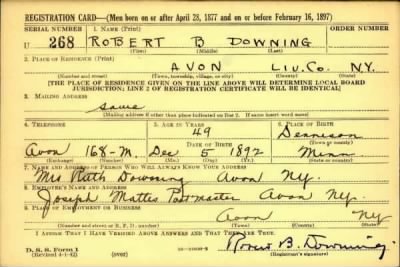 REGISTRATION CARD—(Men born on or after April 28, 1877 and on or before February 16, 1897)
SERIAL NUMBER 1. NAME (Print)
U 268 ROBERT B DOWNING
(First) (Middle) (Last)
2. PLACE OF RESIDENCE (Print)
AVON LIV. CO. N.Y.
(Number and street) (Town, township, village, or city) (County) (State)
[THE PLACE OF RESIDENCE GIVEN ON THE LINE ABOVE WILL DETERMINE LOCAL BOARD
JURISDICTION; LINE 2 OF REGISTRATION CERTIFICATE WILL BE IDENTICAL]
3. MAILING ADDRESS
same
[Mailing address if other than place indicated on line 2. If same insert word same]
4. TELEPHONE 5. AGE IN YEARS 6. PLACE OF BIRTH
49 Dennison
DATE OF BIRTH (Town or county)
Avon 168-M. Dec 5 1892 Minn
(Exchange) (Number) (Mo.) (Day) (Yr.) (State or country)
7. NAME AND ADDRESS OF PERSON WHO WILL ALWAYS KNOW YOUR ADDRESS
Mrs Ruth Downing Avon NY.
8. EMPLOYER'S NAME AND ADDRESS
Joseph Mattes Postmaster Avon NY.
9. PLACE OF EMPLOYMENT OR BUSINESS
Avon NY
(Number and street or R. F. D. number) (Town) (County) (State)
I AFFIRM THAT I HAVE VERIFIED ABOVE ANSWERS AND THAT THEY ARE TRUE.
D. S. S. Form 1
(Revised 4-1-42)
Robert B. Downing
(Registrant's signature)